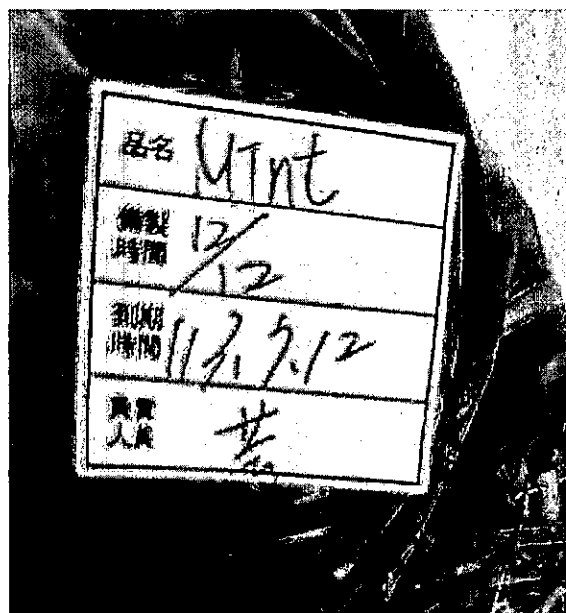 品名 Mint
備製時間 12/12
到期時間 113.5.12
負責人員